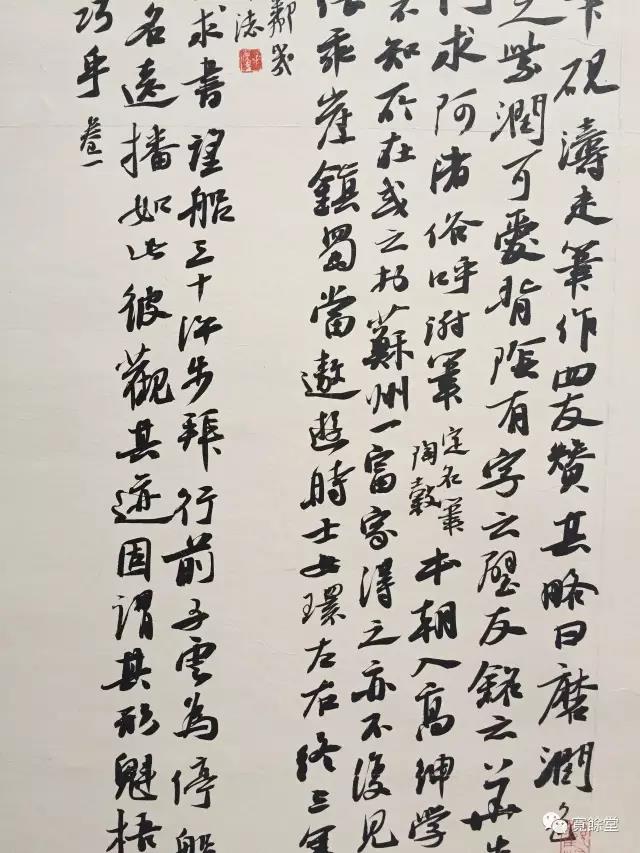 硯濤走筆作四友贊其略曰磨潤色
之紫潤可愛背陰有字云璧友銘云華
求阿俗呼謝筆定名筆陶穀本朝入高紳学
不知所在或云於蘇州一富家得之亦不復見
張乖崖鎮蜀當遨遊時士女環左右終三年
鄰幾
志
求書望船三十許步拜行前子雲為停船
名遠播如此彼觀其迹固謂其形魁梧
巧乎 卷一
寬餘堂